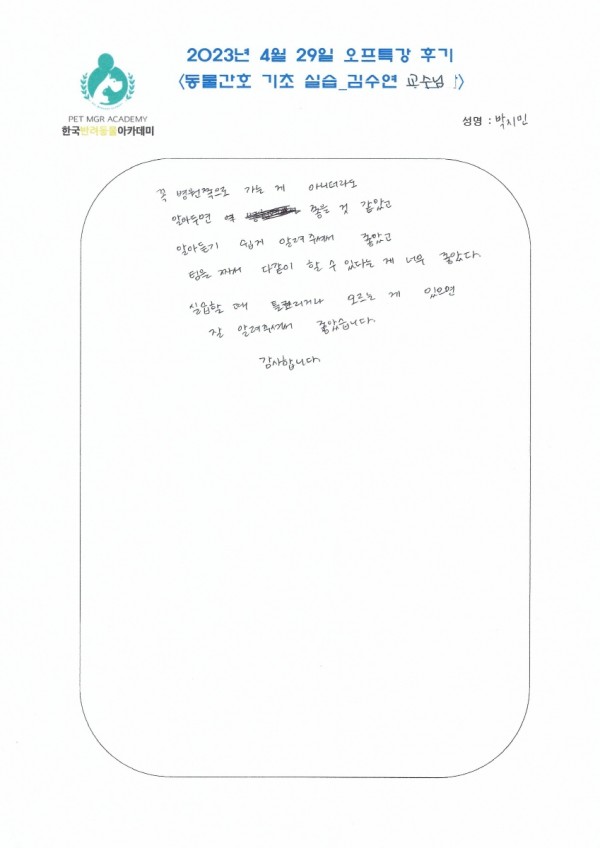 2023년 4월 29일 오프특강 후기
<동물간호 기초 실습_김수연 교수님 ♪>
PET MGR ACADEMY
한국반려동물아카데미
성명 : 박지민
꼭 병원쪽으로 가는 게 아니더라도
알아두면 좋을 것 같았고
알아듣기 쉽게 알려주셔서 좋았고
팀을 짜서 다같이 할 수 있다는 게 너무 좋았다.
실습할 때 틀렸거나 모르는 게 있으면
잘 알려주셔서 좋았습니다.
감사합니다.